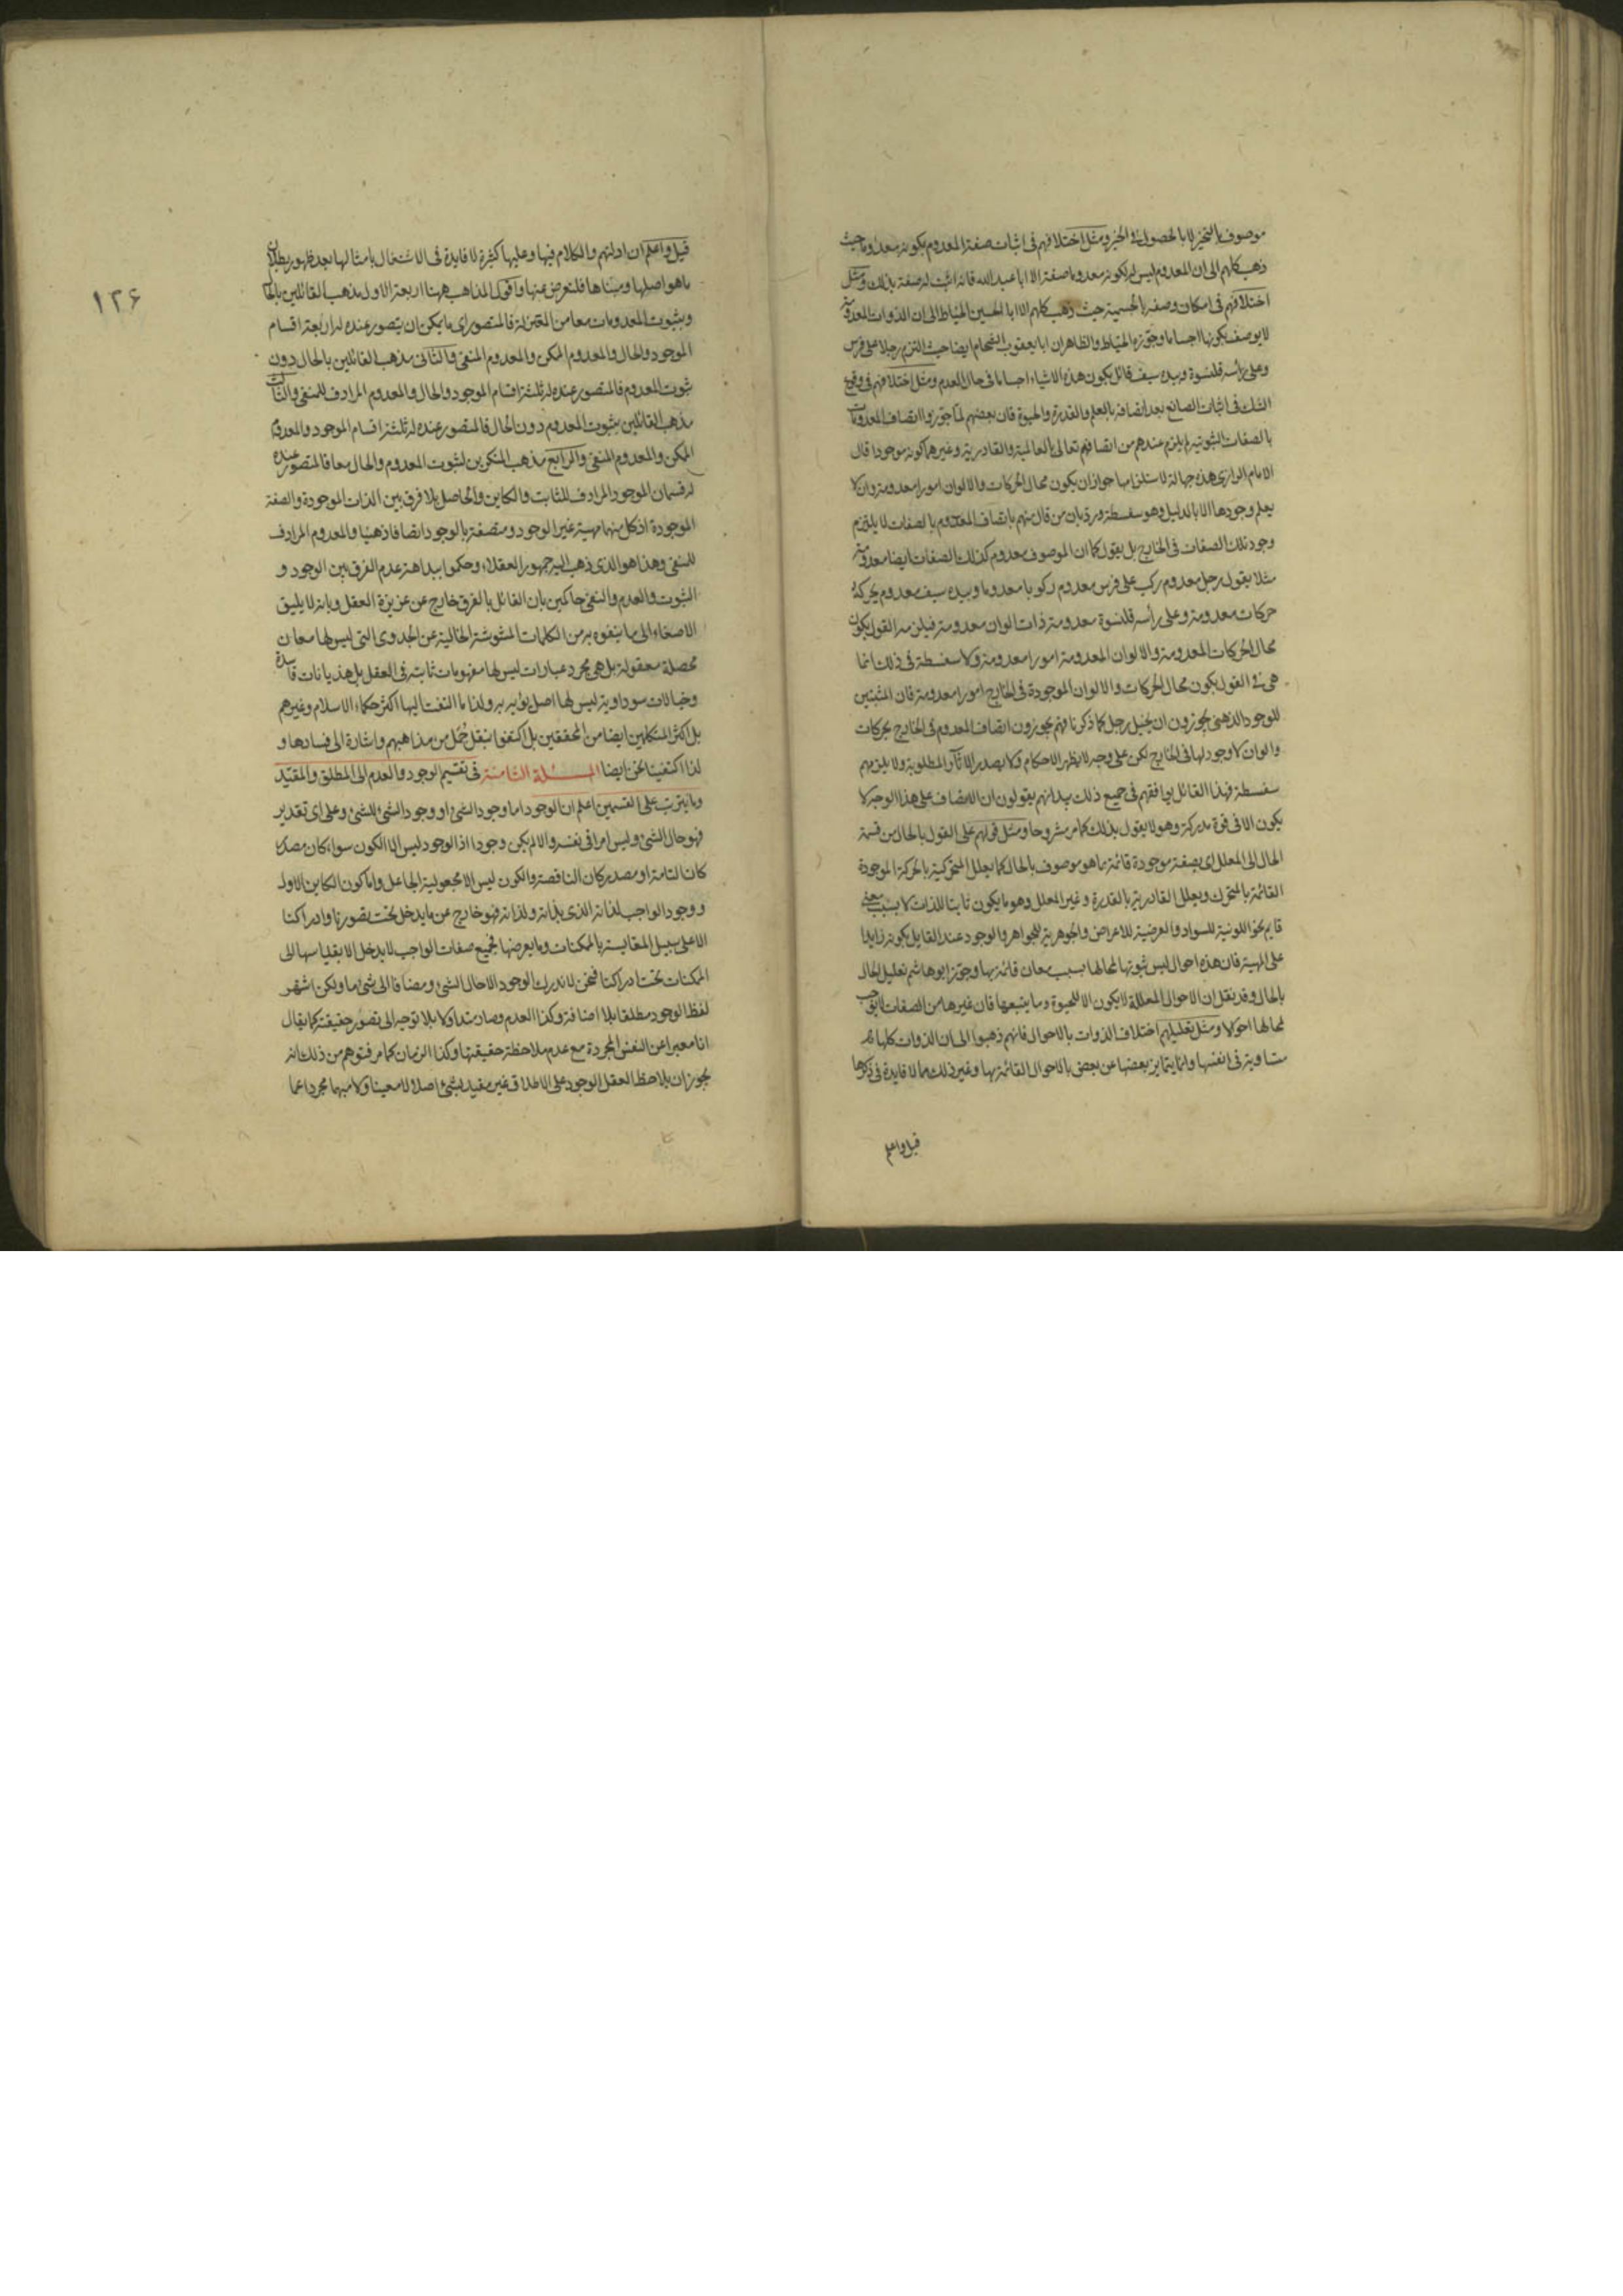 موصوف بالتحيز لا بالحصول فى الحيز ومثل اختلافهم فى اثبات صفة المعدوم بكونه معدوما حيث
ذهب كلهم الى ان المعدوم ليس له لكونه معدوما صفة الا ابا عبد الله فانه اثبت له صفة بذلك ومثل
اختلافهم فى امكان وصفه بالجسمية حيث ذهب كلهم الا ابا الحسين الخياط الى ان الذوات المعدومة
لا يوصف بكونها اجساما وجوزه الخياط والظاهر ان ابا يعقوب الشحام ايضا حيث التزم رجلا على فرس
وعلى رأسه قلنسوة وبيده سيف قائل بكون هذه الاشياء اجساما فى حال العدم ومثل اختلافهم فى وقوع
الشك فى اثبات الصانع بعد اتصافه بالعلم والقدرة والحيوة فان بعضهم لما جوزوا اتصاف المعدومات
بالصفات الثبوتية لم يلزم عندهم من اتصافه تعالى بالعالمية والقادرية وغيرهما كونه موجودا قال
الامام الرازى هذه جهالة لاستلزامها جواز ان يكون محال الحركات والالوان امورا معدومة وان لا
يعلم وجودها الا بالدليل وهو سفسطة ورد بان من قال منهم باتصاف المعدوم بالصفات لا يلتزم
وجود تلك الصفات فى الخارج بل يقول كما ان الموصوف معدوم كذلك الصفات ايضا معدومة
مثلا يقول رجل معدوم ركب على فرس معدوم ركوبا معدوما وبيده سيف معدوم يحركه
حركات معدومة وعلى رأسه قلنسوة معدومة ذات الوان معدومة فيلزمه القول بكون
محال الحركات المعدومة والالوان المعدومة امورا معدومة ولا سفسطة فى ذلك انما
هى فى القول بكون محال الحركات والالوان الموجودة فى الخارج امورا معدومة فان المثبتين
للوجود الذهنى يجوزون ان يخيل رجل كما ذكرنا فهم يجوزون اتصاف المعدوم فى الخارج بحركات
والوان لا وجود لها فى الخارج لكن على وجه لا يظهر الاحكام ولا يصدر الآثار المطلوبة ولا يلزمهم
سفسطة فهذا القائل يوافقهم فى جميع ذلك بيد انهم يقولون ان الاتصاف على هذا الوجه لا
يكون الا فى قوة مدركة وهو لا يقول بذلك كما مر مشروحا ومثل قولهم على القول بالحال من قسمة
الحال الى المعلل اى بصفة موجودة قائمة بما هو موصوف بالحال كما يعلل المتحركية بالحركة الموجودة
القائمة بالمتحرك ويعلل القادرية بالقدرة وغير المعلل وهو ما يكون ثابتا للذات لا بسبب معنى
قايم نحو اللونية للسواد والعرضية للاعراض والجوهرية للجواهر والوجود عند القايل بكونه زايدا
على المهية فان هذه احوال ليس ثبوتها لمحالها بسبب معان قائمة بها وجوز ابو هاشم تعليل الحال
بالحال وقد نقل ان الاحوال المعللة لا يكون الا للحيوة وما يتبعها فان غيرها من الصفات لا يوجب
لمحالها احوالا ومثل تعليلهم اختلاف الذوات بالاحوال فانهم ذهبوا الى ان الذوات كلها
متساوية فى انفسها وانما يتمايز بعضها عن بعض بالاحوال القائمة بها وغير ذلك مما لا فايدة فى ذكرها
قيل واعلم
١٢۶
قيل واعلم ان ادلتهم والكلام فيها وعليها كثيرة لا فايدة فى الاشتغال بامثالها بعد ظهور بطلان
ما هو اصلها ومبناها فلنعرض عنها واقول المذاهب ههنا اربعة الاول مذهب القائلين بالحال
وبثبوت المعدومات معا من المعتزلة فالمتصور اى ما يمكن ان يتصور عنده له اربعة اقسام
الموجود والحال والمعدوم الممكن والمعدوم المنفى والثانى مذهب القائلين بالحال دون
ثبوت المعدوم فالمتصور عنده له ثلثة اقسام الموجود والحال والمعدوم المرادف للمنفى والثالث
مذهب القائلين بثبوت المعدوم دون الحال فالمتصور عنده له ثلثة اقسام الموجود والمعدوم
الممكن والمعدوم المنفى والرابع مذهب المنكرين لثبوت المعدوم والحال معا فالمتصور عنده
له قسمان الموجود المرادف للثابت والكاين والحاصل بلا فرق بين الذات الموجودة والصفة
الموجودة اذ كل منها مهية غير الوجود ومتصفة بالوجود اتصافا ذهنيا والمعدوم المرادف
للمنفى وهذا هو الذى ذهب اليه جمهور العقلاء وحكموا ببداهة عدم الفرق بين الوجود و
الثبوت والعدم والنفى حاكمين بان القائل بالفرق خارج عن غريزة العقل وبانه لا يليق
الاصغاء الى ما يتفوه به من الكلمات المشوشة الخالية عن الجدوى التى ليس لها معان
محصلة معقولة بل هى مجرد عبارات ليس لها مفهومات ثابتة فى العقل بل هذيانات فاسدة
وخيالات سوداوية ليس لها اصل يؤبه به ولذا ما التفت اليها اكثر حكماء الاسلام وغيرهم
بل اكثر المتكلمين ايضا من المحققين بل اكتفوا بنقل جمل من مذاهبهم واشارة الى فسادها و
لذا اكتفينا نحن ايضا المسئلة الثامنة فى تقسيم الوجود والعدم الى المطلق والمقيد
وما يترتب على القسمين اعلم ان الوجود اما وجود الشئ او وجود الشئ للشئ وعلى اى تقدير
فهو حال الشئ وليس امرا فى نفسه والا لم يكن وجودا اذ الوجود ليس الا الكون سواء كان مصدر
كان التامة او مصدر كان الناقصة والكون ليس الا مجعولية الجاعل واما كون الكاين الاول
ووجود الواجب لذاته الذى بذاته ولذاته فهو خارج عن ما يدخل تحت تصورنا وادراكنا
الا على سبيل المقايسة بالممكنات وما يعرضها فجميع صفات الواجب لا يدخل الا بقياسها الى
الممكنات تحت ادراكنا فنحن لا ندرك الوجود الا حال الشئ ومضافا الى شئ ما ولكن اشتهر
لفظ الوجود مطلقا بلا اضافة وكذا العدم وصار متداولا بلا توجه الى تصور حقيقته كما يقال
انا معبرا عن النفس المجردة مع عدم ملاحظة حقيقتها وكذا الزمان كما مر فتوهم من ذلك انه
يجوز ان يلاحظ العقل الوجود على الاطلاق غير مقيد بشئ اصلا لا معينا ولا مبهما مجردا عما